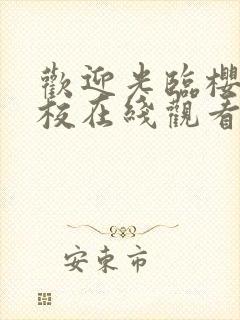 歡迎光臨櫻
板在綫觀看
安東市